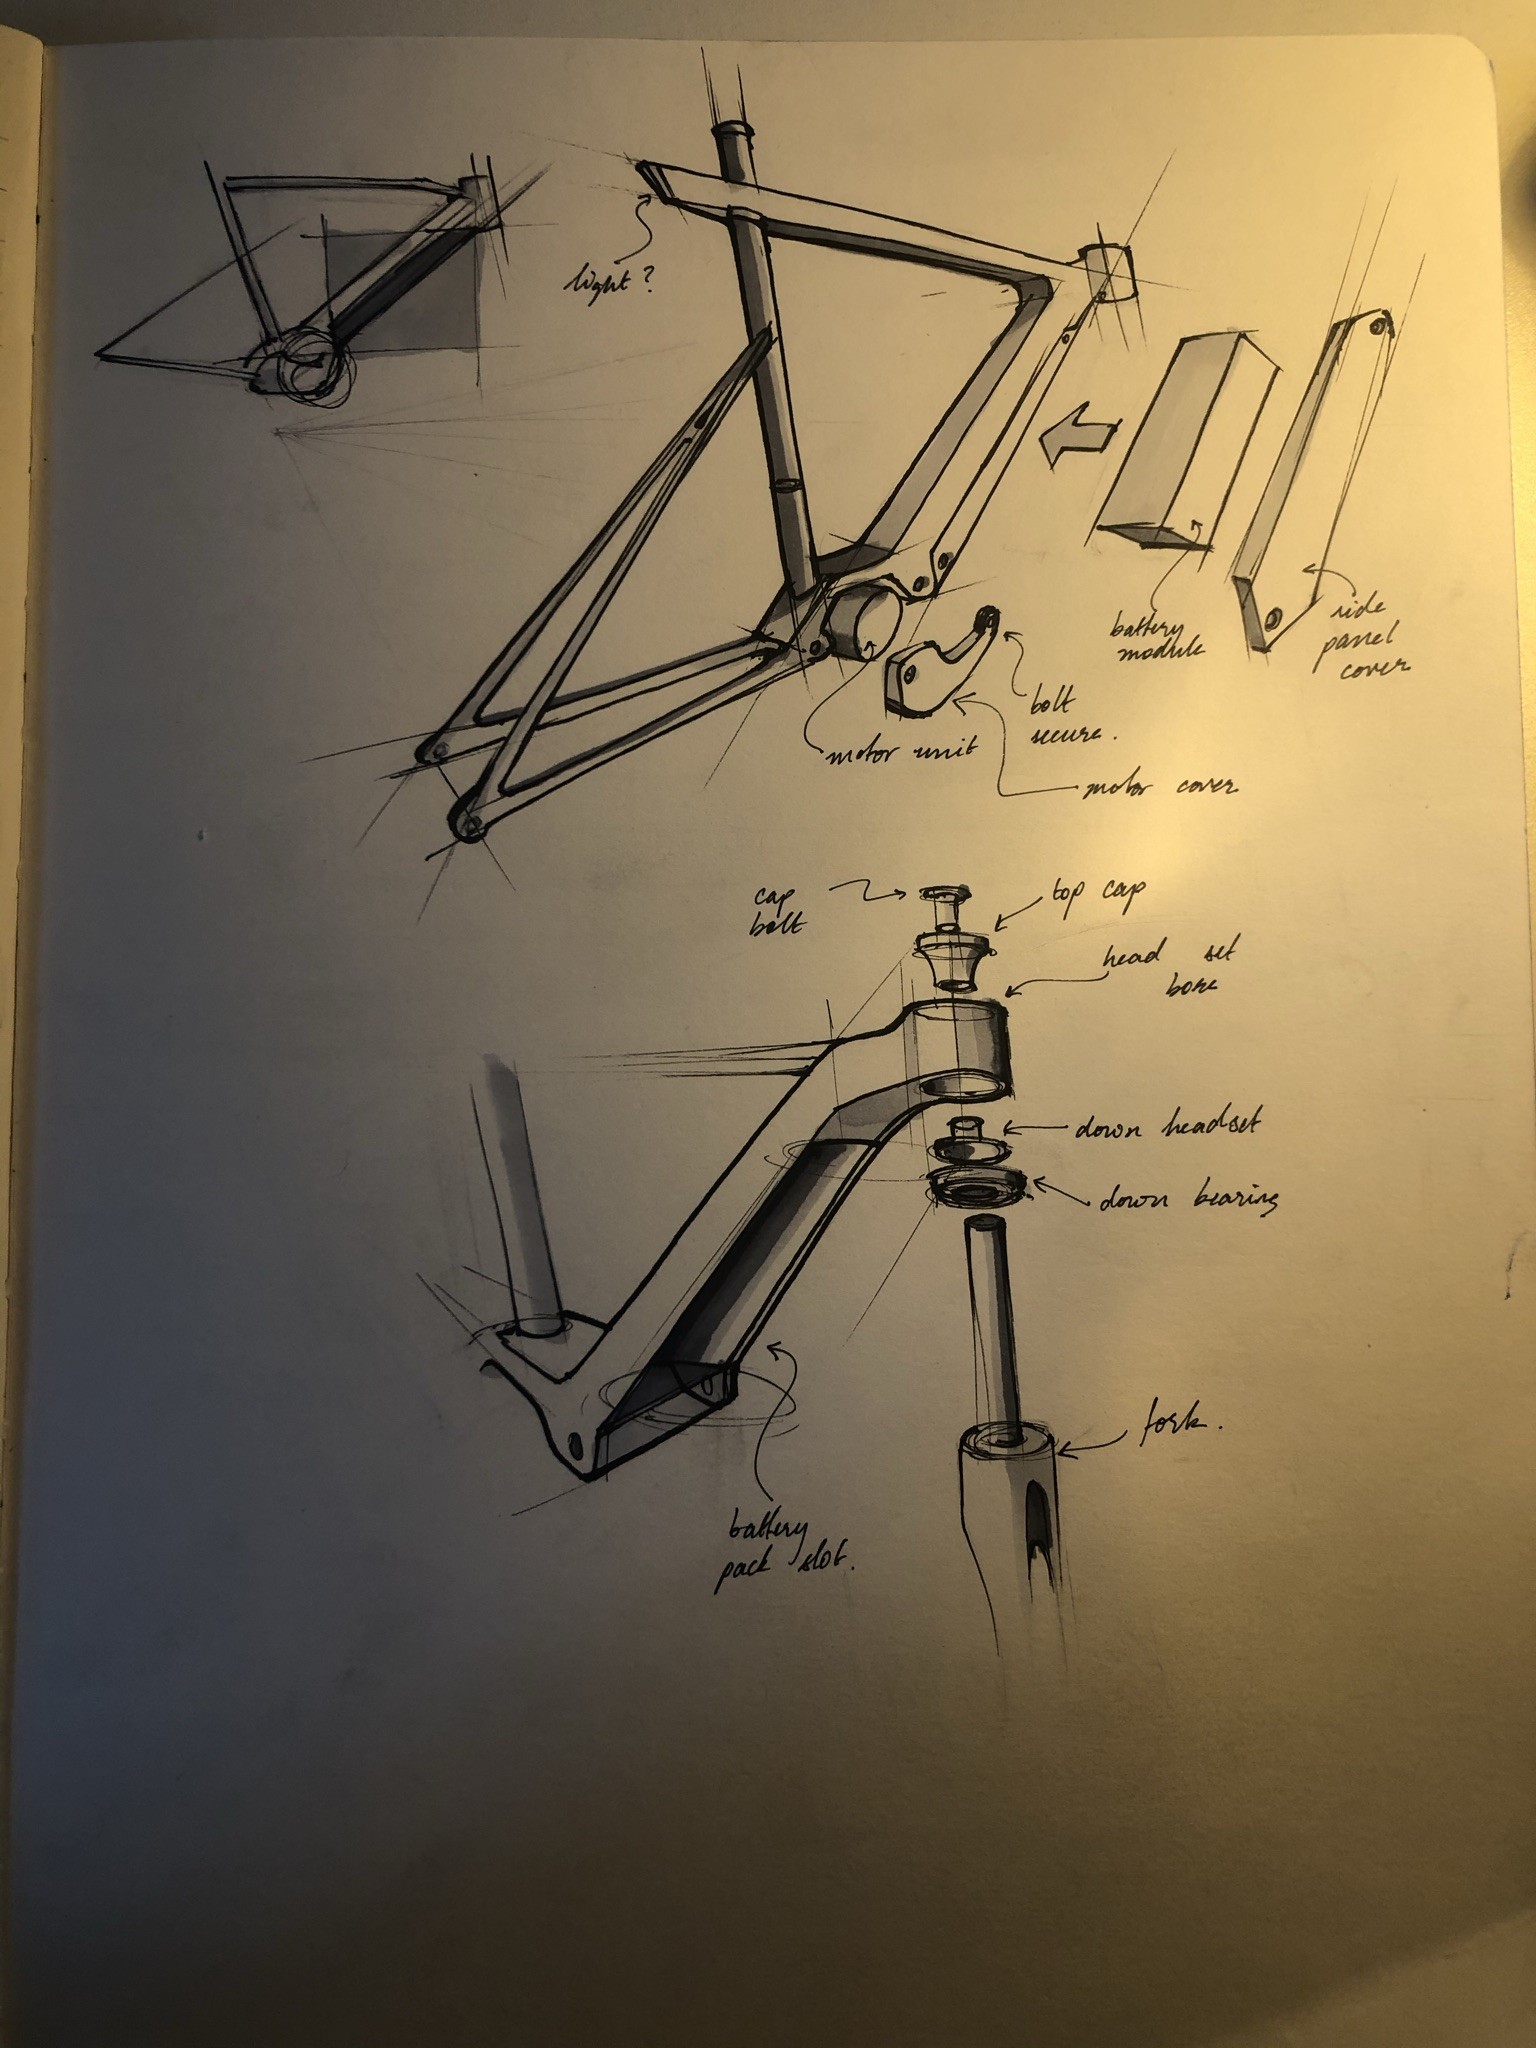 light?
battery
module
side
panel
cover
bolt
secure.
motor unit
motor cover
cap
bolt
top cap
head set
bore
down headset
down bearing
fork.
battery
pack slot.